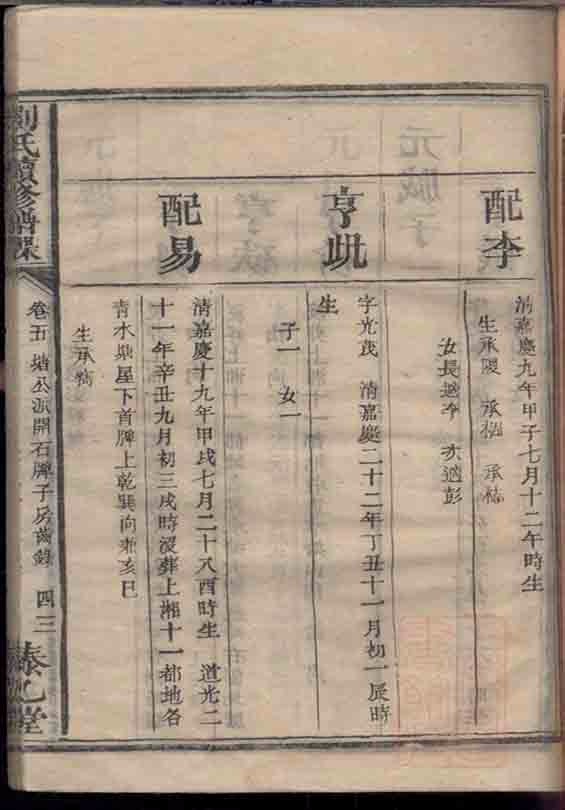 配李
清嘉慶九年甲子七月十二午時生
生承陵　承　承
女長適李　次適彭
亨
字光茂　清嘉慶二十二年丁丑十一月初一辰時
生
子一　女一
配易
清嘉慶十九年甲戌七月二十八酉時生　道光二
十一年辛丑九月初三戌時沒葬上湘十一都地名
青水塘屋下首脾上乾巽向兼亥巳
生承
劉氏續修譜牒
卷五　塘公派開石牌子房齒錄　四三
堂